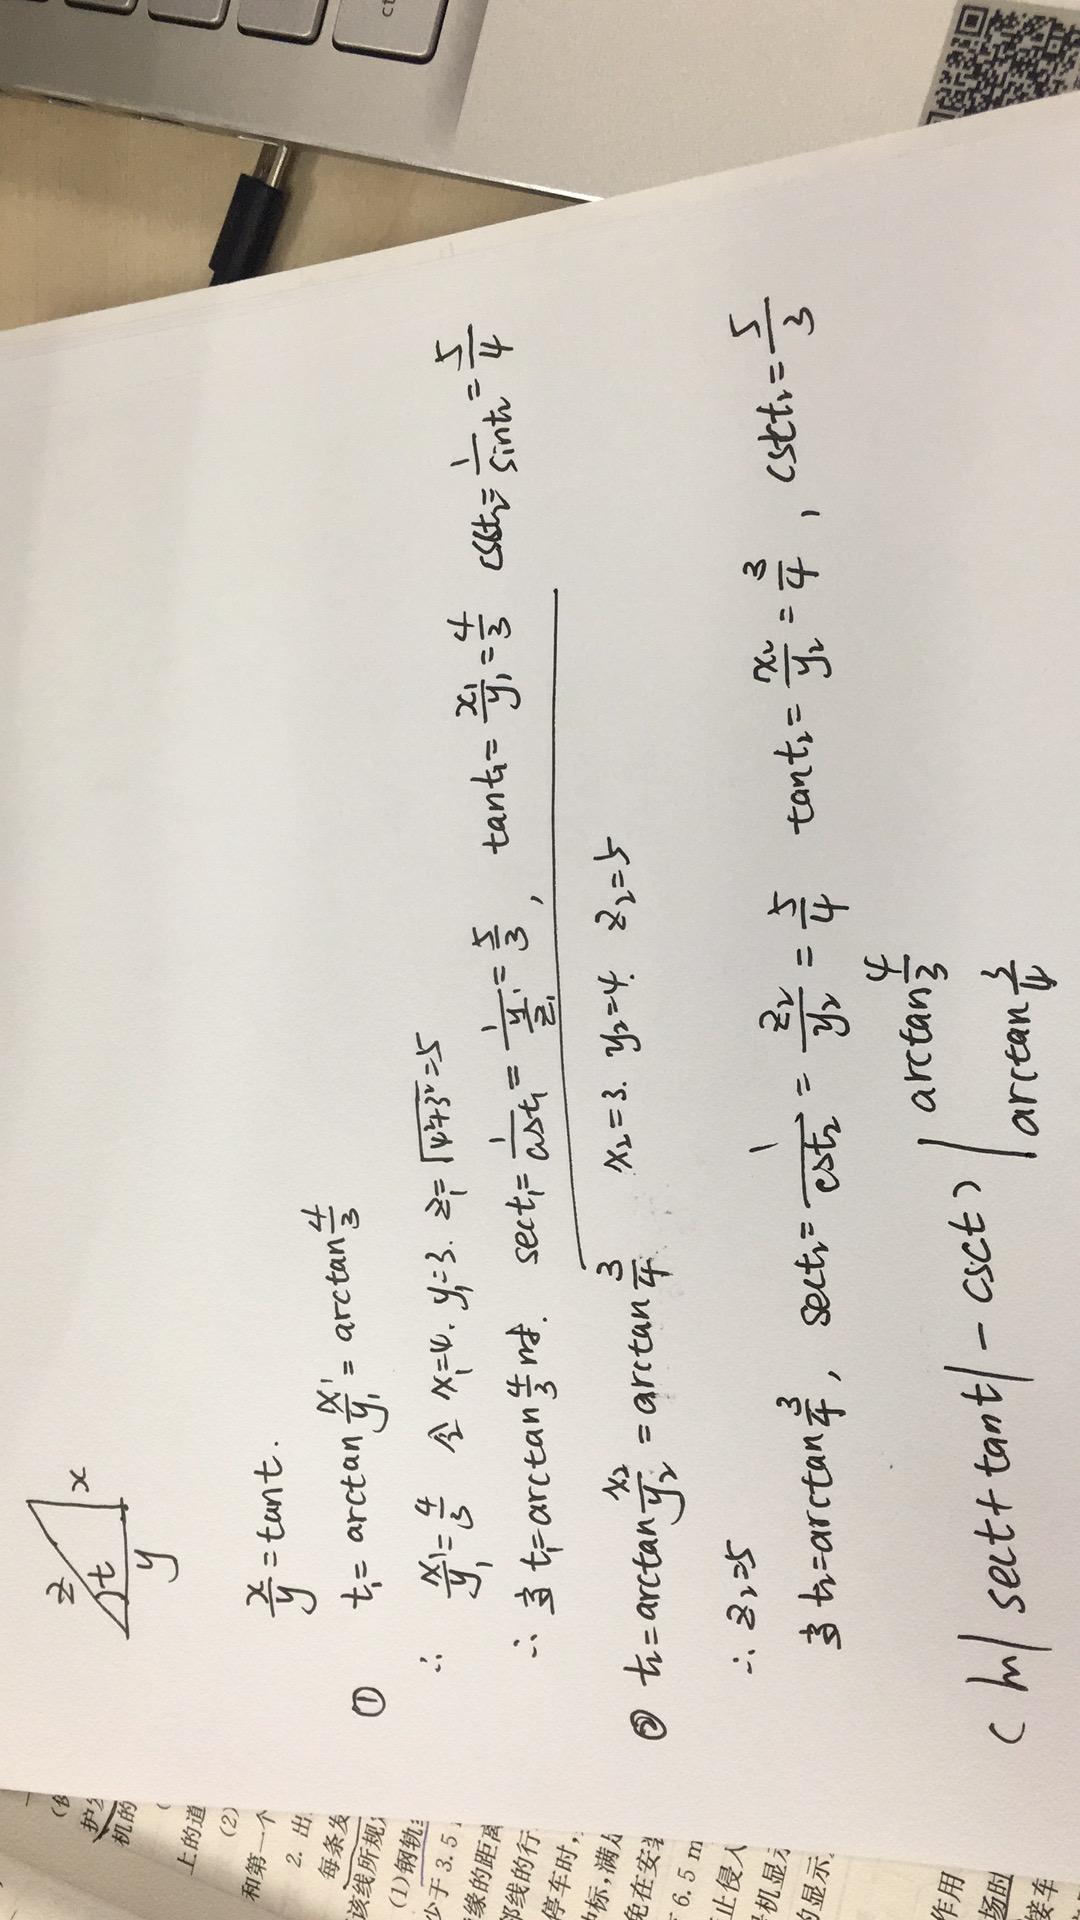 z
t
x
y
x/y = tant.
① t₁ = arctan x₁/y₁ = arctan 4/3
∴ x₁/y₁ = 4/3 令 x₁=4. y₁=3. z₁=√(4²+3²)=5
∴ 当 t₁=arctan 4/3 时. sect₁ = 1/cost₁ = 1/(y₁/z₁) = 5/3 , tant₁ = x₁/y₁ = 4/3 csct₂ = 1/sint₂ = 5/4
② t₂=arctan x₂/y₂ = arctan 3/4 x₂=3. y₂=4. z₂=5
∴ z₂=5
当 t₂=arctan 3/4 , sect₂= 1/cost₂ = z₂/y₂ = 5/4 tant₂= x₂/y₂ = 3/4 , csct₂= 5/3
( ln| sect + tant | - csct ) | arctan 4/3 arctan 3/4
护
机的
上的道
(2)
和第一个
2. 出
每条发
该线所规
(1)钢轨
少于 3.5
缘的距离
部线的行
停车时,
标,满足
免在安装
6.5 m
止侵入
机显示
的显示
作用
场的
接车